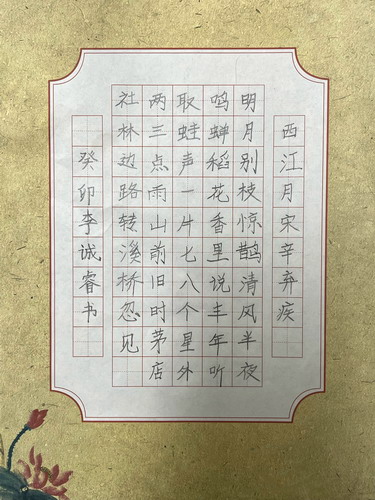 西江月宋辛弃疾
明月别枝惊鹊清风半夜
鸣蝉稻花香里说丰年听
取蛙声一片七八个星外
两三点雨山前旧时茅店
社林边路转溪桥忽见
癸卯李诚睿书